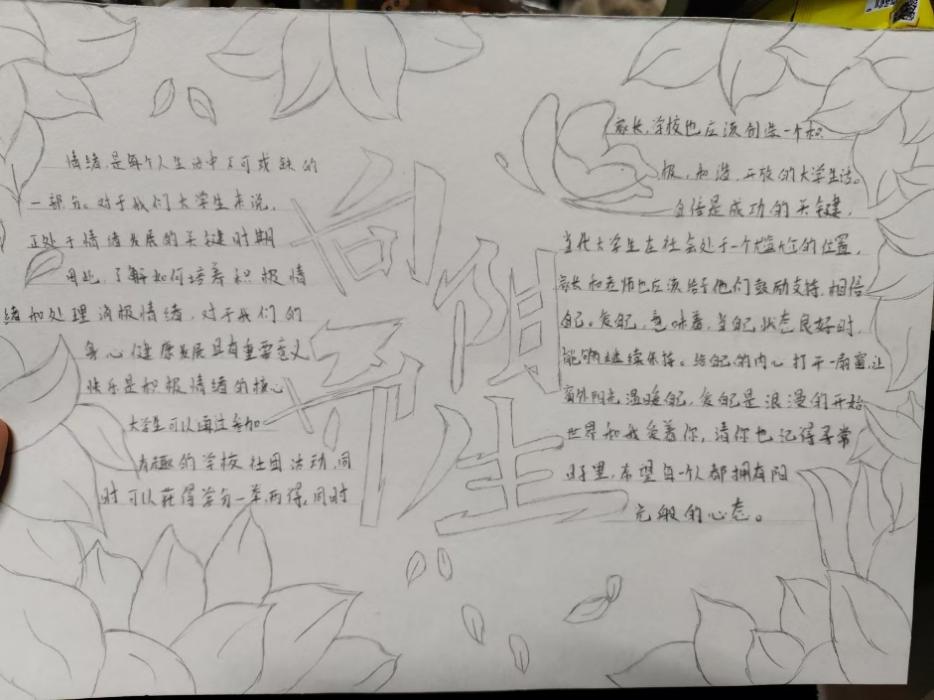 情绪，是每个人生活中不可或缺的
一部分。对于我们大学生来说，
正处于情绪发展的关键时期
因此，了解如何培养积极情
绪和处理消极情绪，对于我们的
身心健康发展具有重要意义
快乐是积极情绪的核心
大学生可以通过参加
有趣的学校社团活动，同
时可以获得学分一举两得，同时
向阳
而生
家长，学校也应该创造一个积
极，和谐，开放的大学生活。
自信是成功的关键，
当代大学生在社会处于一个尴尬的位置，
家长和老师也应该给予他们鼓励支持，相信
自己。爱自己，意味着，当自己状态良好时，
能够继续保持。给自己的内心打开一扇窗，让
窗外阳光温暖自己，爱自己是浪漫的开始
世界和我爱着你，请你也记得寻常
好里，希望每个人都拥有阳
光般的心态。